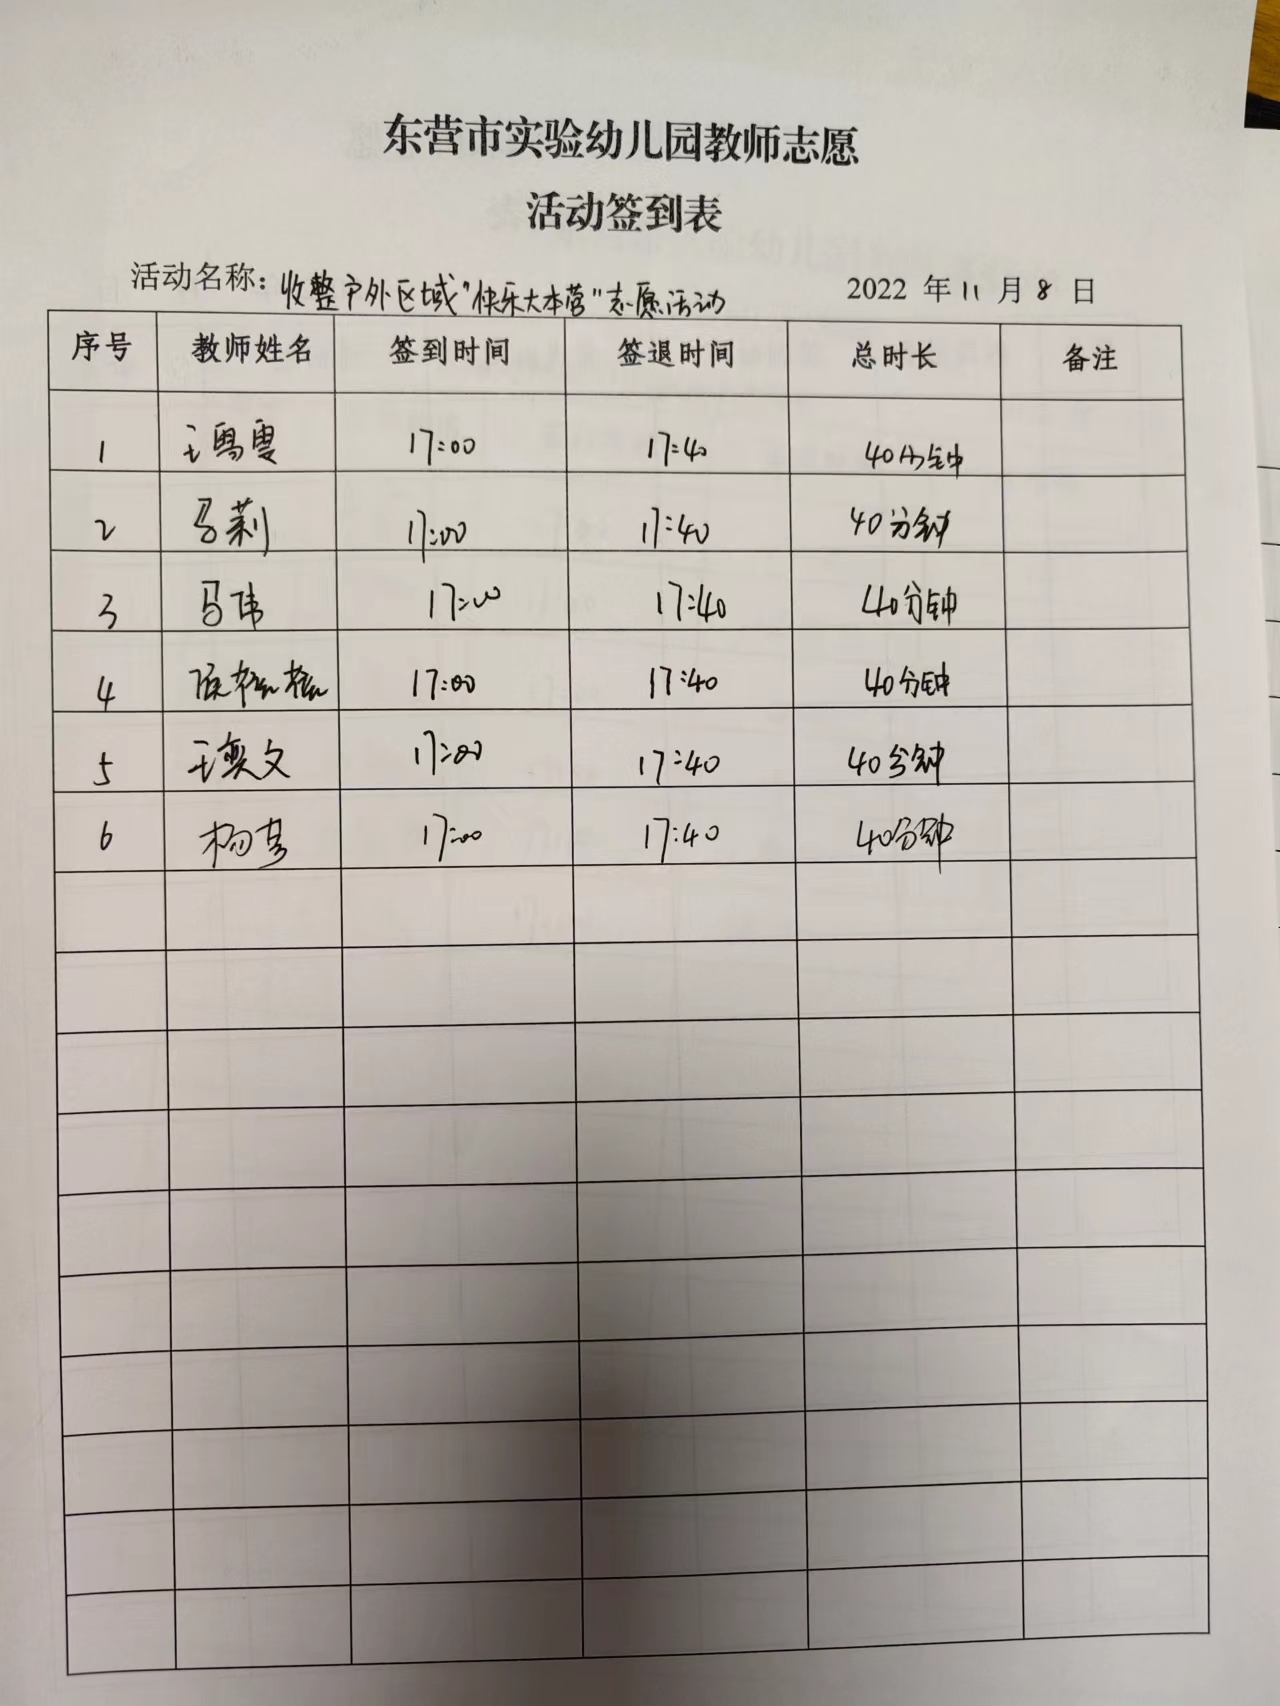 东营市实验幼儿园教师志愿
活动签到表
活动名称：收整户外区域"快乐大本营"志愿活动 2022 年 11 月 8 日
序号 教师姓名 签到时间 签退时间 总时长 备注
1 17:00 17:40 40分钟
2 马莉 17:00 17:40 40分钟
3 马伟 17:00 17:40 40分钟
4 17:00 17:40 40分钟
5 王奕文 17:00 17:40 40分钟
6 17:00 17:40 40分钟